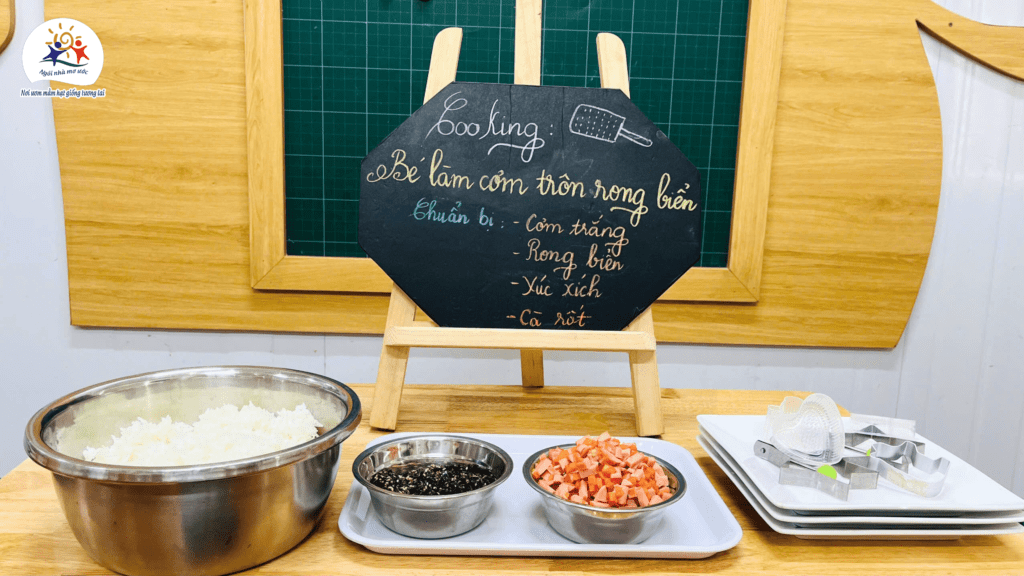 Ngôi nhà mơ ước
Nơi ươm mầm hạt giống tương lai
Cooking:
Bé làm cơm trộn rong biển
Chuẩn bị: - Cơm trắng
- Rong biển
- Xúc xích
- Cà rốt